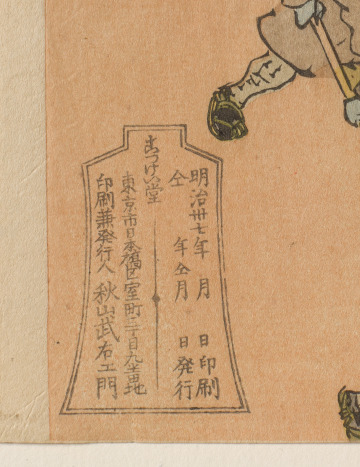 明治卅七年　月　日印刷
仝　年仝月　日発行
こつけい堂
東京市日本橋区室町三丁目九番地
印刷兼発行人 秋山武右エ門